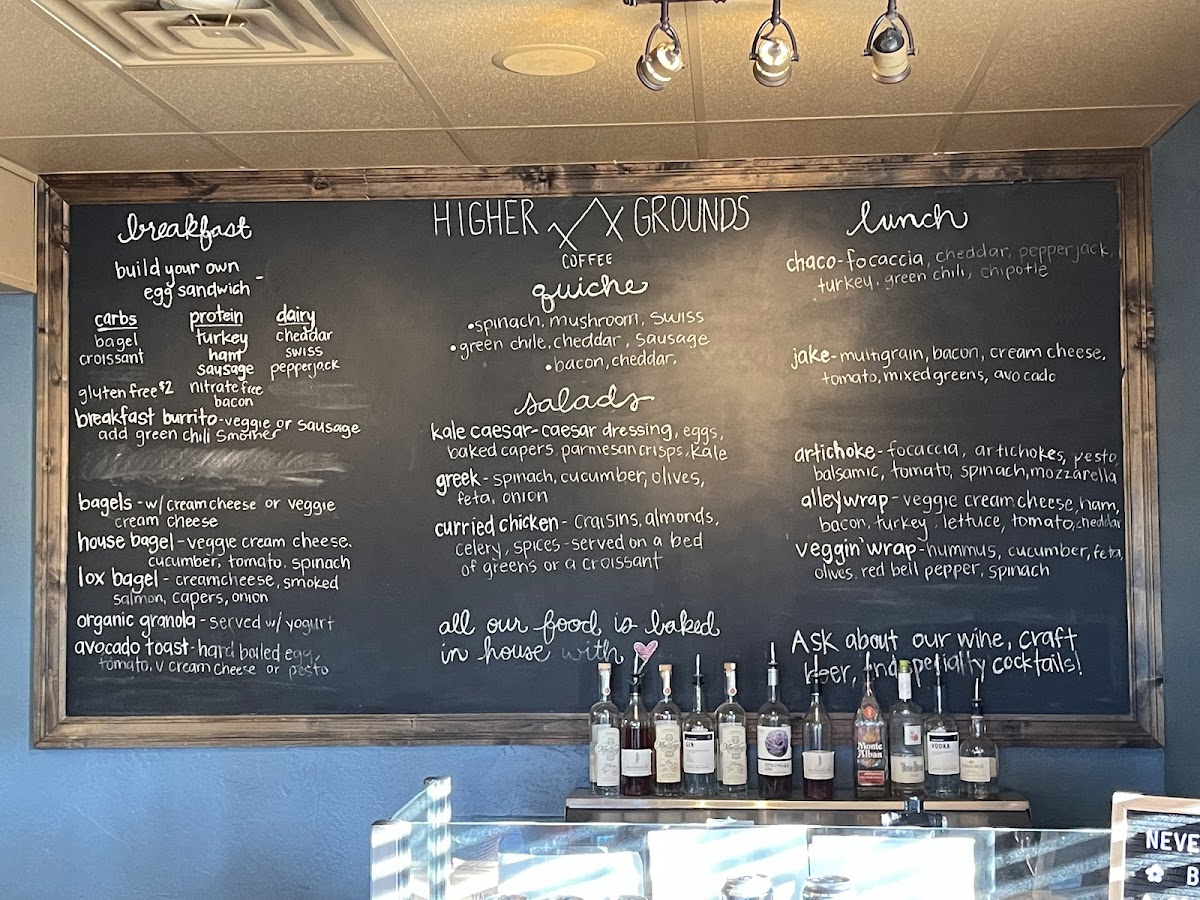 breakfast
build your own
egg sandwich -
carbs
bagel
croissant
gluten free $2
protein
turkey
ham
sausage
nitrate free
bacon
dairy
cheddar
swiss
pepperjack
breakfast burrito - veggie or sausage
add green chili smother
bagels - w/ cream cheese or veggie
cream cheese
house bagel - veggie cream cheese,
cucumber, tomato, spinach
lox bagel - creamcheese, smoked
salmon, capers, onion
organic granola - served w/ yogurt
avocado toast - hard boiled egg,
tomato, v cream cheese or pesto
HIGHER GROUNDS
COFFEE
quiche
•spinach, mushroom, swiss
•green chile, cheddar, sausage
•bacon, cheddar,
salads
kale caesar - caesar dressing, eggs,
baked capers, parmesan crisps, kale
greek - spinach, cucumber, olives,
feta, onion
curried chicken - craisins, almonds,
celery, spices - served on a bed
of greens or a croissant
all our food is baked
in house with
lunch
chaco - focaccia, cheddar, pepperjack,
turkey, green chili, chipotle
jake - multigrain, bacon, cream cheese,
tomato, mixed greens, avocado
artichoke - focaccia, artichokes, pesto,
balsamic, tomato, spinach, mozzarella
alley wrap - veggie cream cheese, ham,
bacon, turkey, lettuce, tomato, cheddar
veggin' wrap - hummus, cucumber, feta,
olives, red bell pepper, spinach
Ask about our wine, craft
beer, and specialty cocktails!
GIN
Monte
Alban
VODKA
NEVE
B